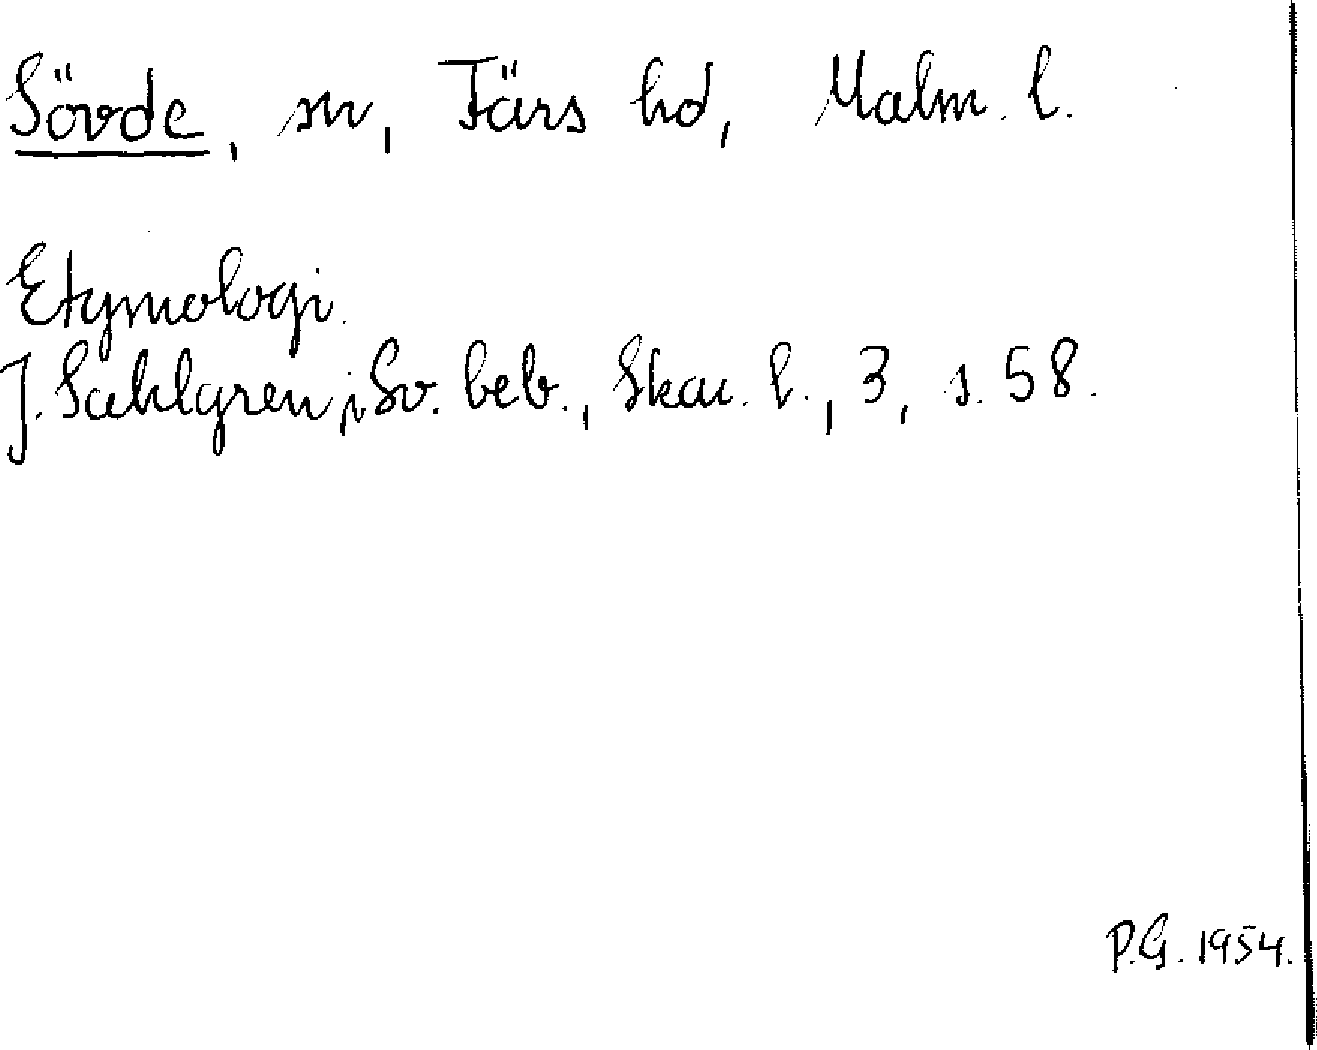 Sövde, sn, Färs hd, Malm. l.
Etymologi.
J. Sahlgren, i Sv. beb., Skån. l., 3, s. 58.
P.G. 1954.